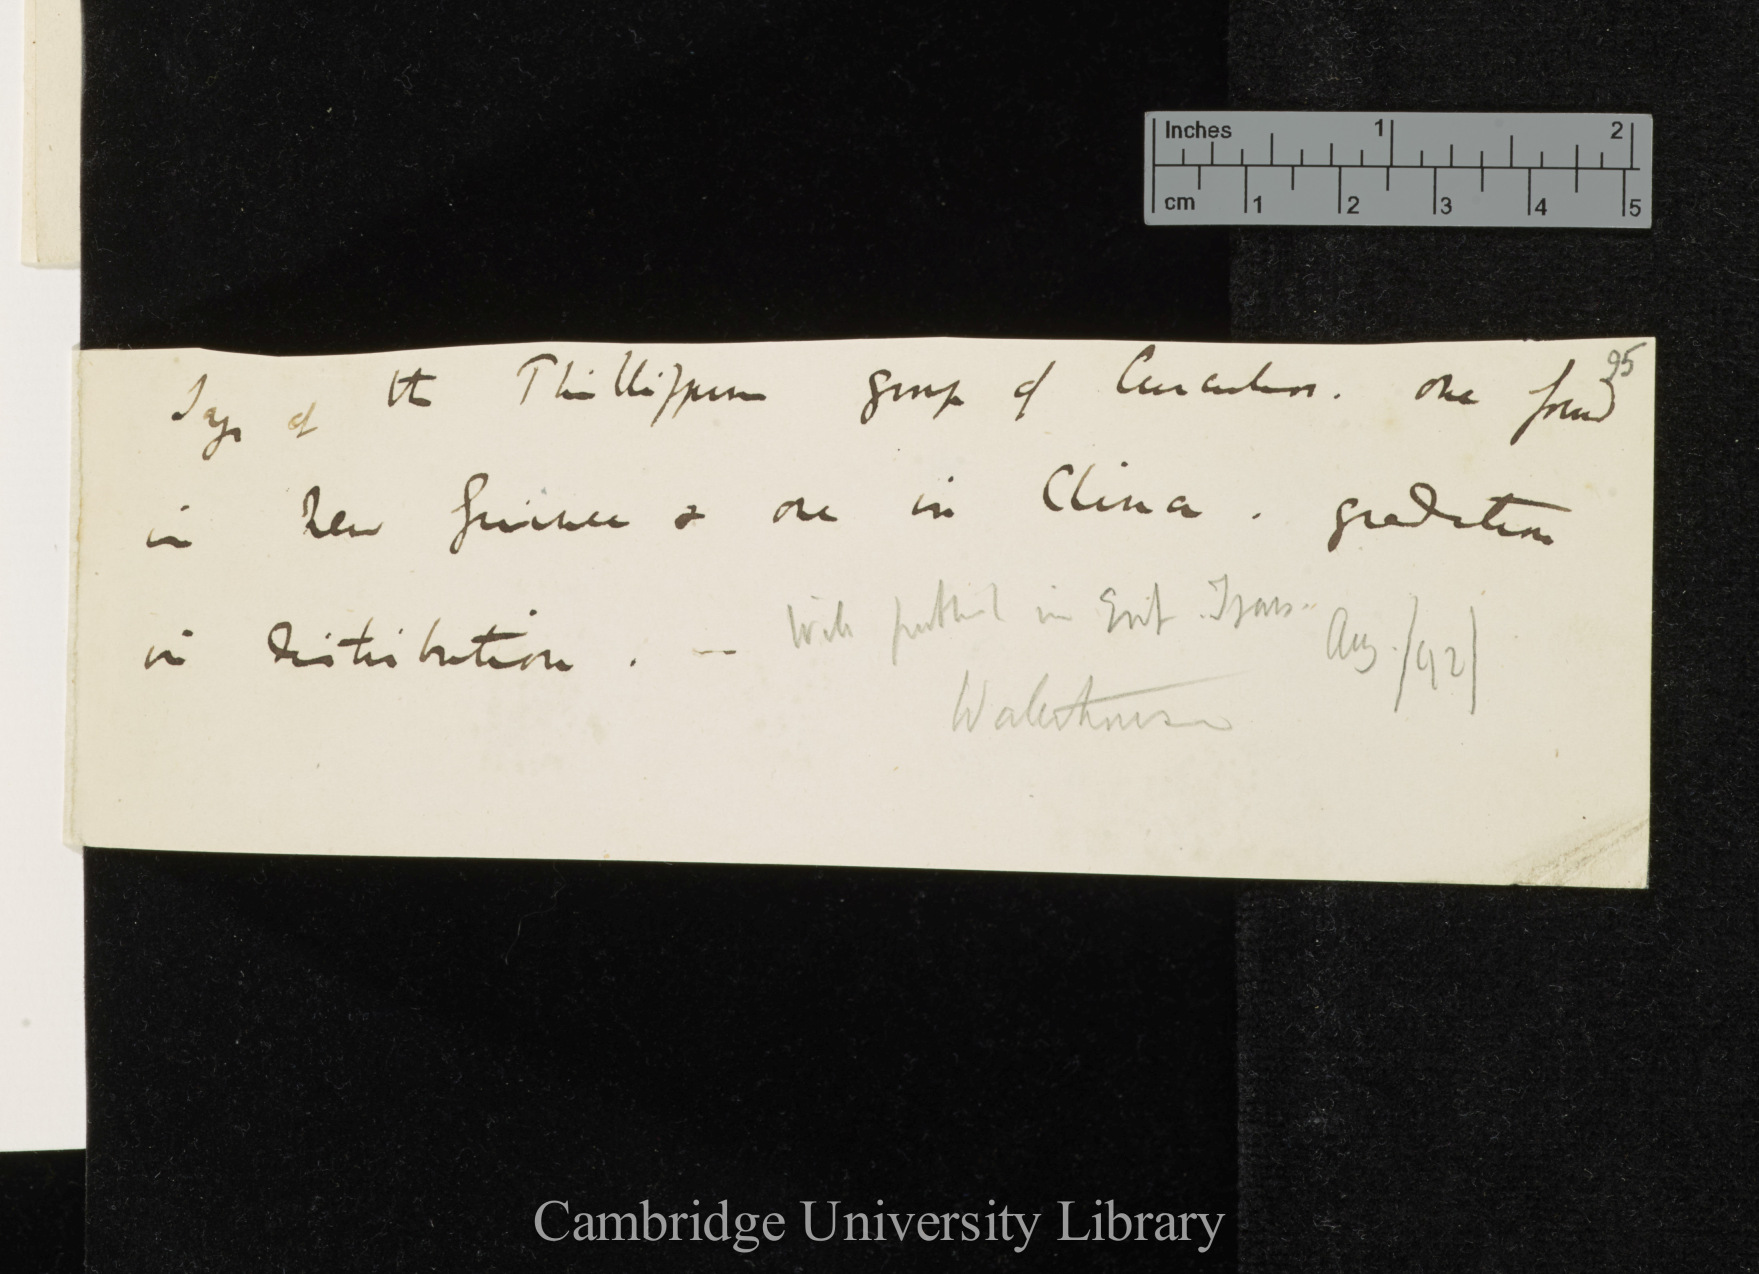 Inches 1 2
cm 1 2 3 4 5
95
Says of the Phillippine group of Curculios. one found
in New Guinea & one in China. gradation
in distribution. —
Will publish in Ent. Trans.. Aug./42/
Waterhouse
Cambridge University Library